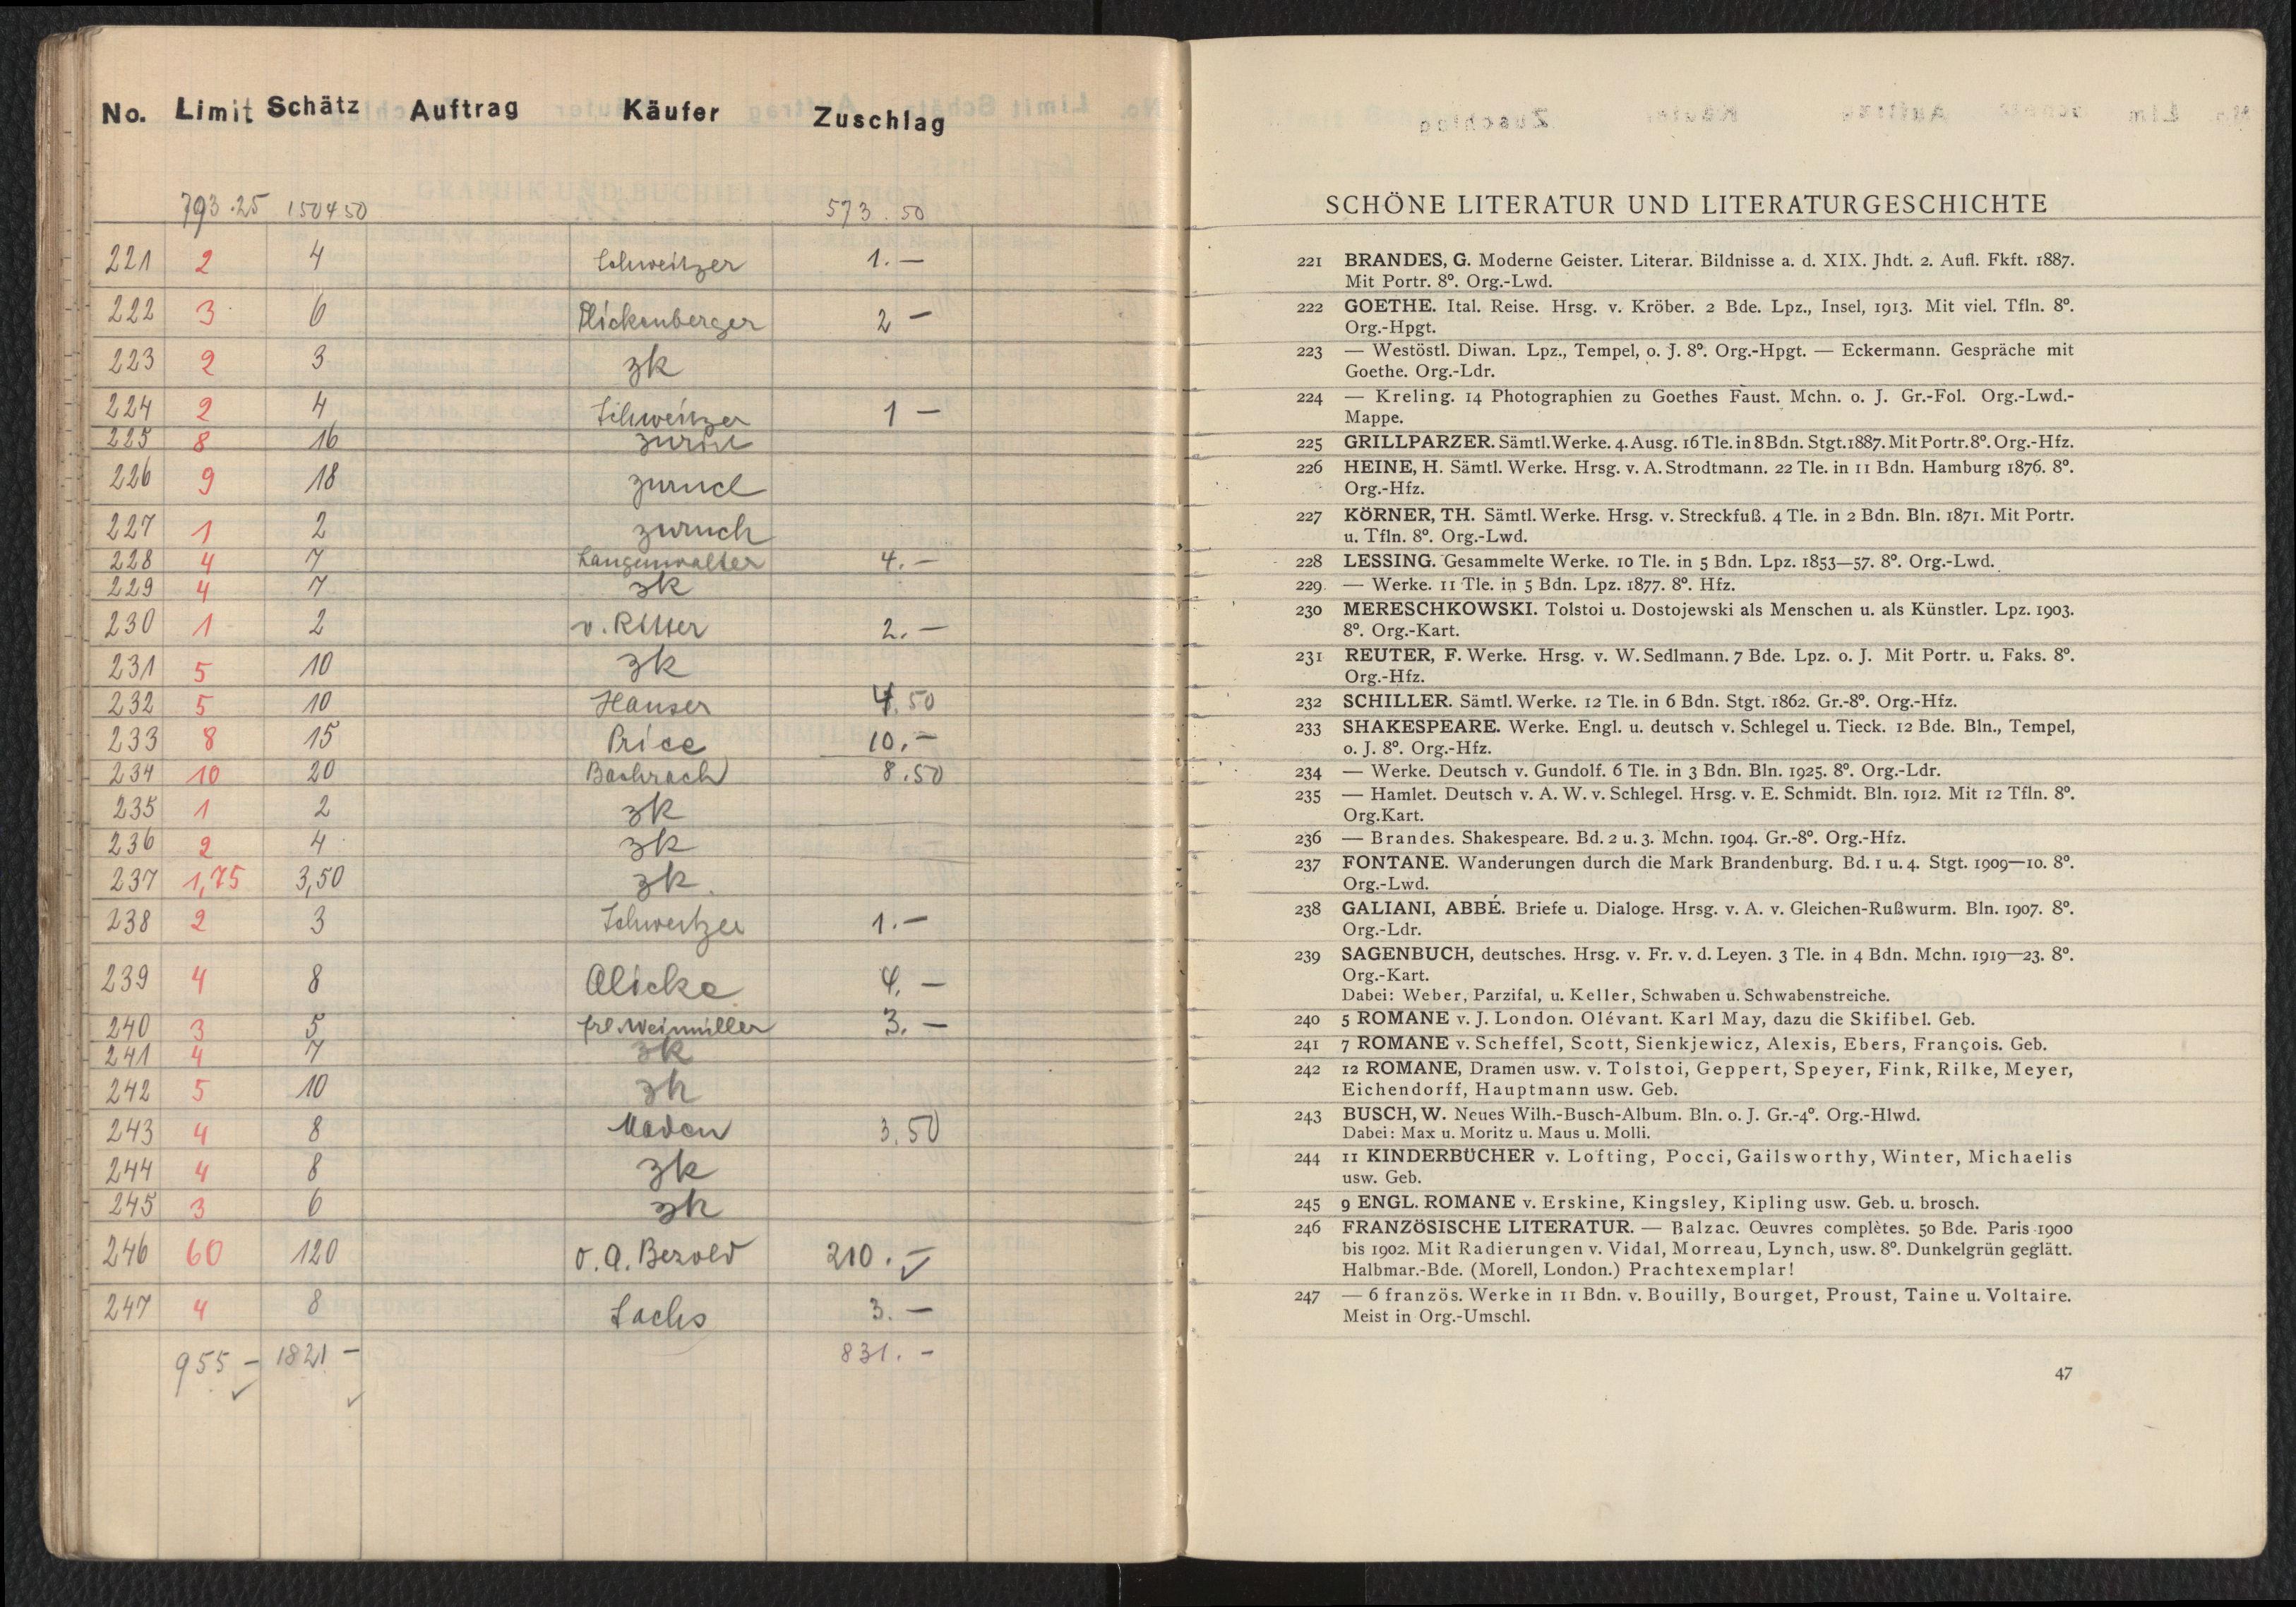 No. Limit Schätz Auftrag Käufer Zuschlag
793.25 1504 50 573.50
221 2 4 Schweitzer 1.—
222 3 6 2 —
223 2 3 zk
224 2 4 Schweitzer 1 —
225 8 16 zurück
226 9 18 zurück
227 1 2 zurück
228 4 7 Langenwalter 4.—
229 4 7 zk
230 1 2 v. Ritter 2.—
231 5 10 zk
232 5 10 Hauser 4.50
233 8 15 Price 10.—
234 10 20 Bachrach 8.50
235 1 2 zk
236 2 4 zk
237 1,75 3,50 zk
238 2 3 Schweitzer 1.—
239 4 8 Alicke 4. —
240 3 5 frl. Weinmiller 3. —
241 4 7 zk
242 5 10 zk
243 4 8 3.50
244 4 8 zk
245 3 6 zk
246 60 120 v. A. Bezold 210.—
247 4 8 Sachs 3. —
955 — 1821 — 831. —
SCHÖNE LITERATUR UND LITERATURGESCHICHTE
221 BRANDES, G. Moderne Geister. Literar. Bildnisse a. d. XIX. Jhdt. 2. Aufl. Fkft. 1887.
Mit Portr. 8°. Org.-Lwd.
222 GOETHE. Ital. Reise. Hrsg. v. Kröber. 2 Bde. Lpz., Insel, 1913. Mit viel. Tfln. 8°.
Org.-Hpgt.
223 — Westöstl. Diwan. Lpz., Tempel, o. J. 8°. Org.-Hpgt. — Eckermann. Gespräche mit
Goethe. Org.-Ldr.
224 — Kreling. 14 Photographien zu Goethes Faust. Mchn. o. J. Gr.-Fol. Org.-Lwd.-
Mappe.
225 GRILLPARZER. Sämtl. Werke. 4. Ausg. 16 Tle. in 8 Bdn. Stgt. 1887. Mit Portr. 8°. Org.-Hfz.
226 HEINE, H. Sämtl. Werke. Hrsg. v. A. Strodtmann. 22 Tle. in 11 Bdn. Hamburg 1876. 8°.
Org.-Hfz.
227 KÖRNER, TH. Sämtl. Werke. Hrsg. v. Streckfuß. 4 Tle. in 2 Bdn. Bln. 1871. Mit Portr.
u. Tfln. 8°. Org.-Lwd.
228 LESSING. Gesammelte Werke. 10 Tle. in 5 Bdn. Lpz. 1853—57. 8°. Org.-Lwd.
229 — Werke. 11 Tle. in 5 Bdn. Lpz. 1877. 8°. Hfz.
230 MERESCHKOWSKI. Tolstoi u. Dostojewski als Menschen u. als Künstler. Lpz. 1903.
8°. Org.-Kart.
231 REUTER, F. Werke. Hrsg. v. W. Sedlmann. 7 Bde. Lpz. o. J. Mit Portr. u. Faks. 8°.
Org.-Hfz.
232 SCHILLER. Sämtl. Werke. 12 Tle. in 6 Bdn. Stgt. 1862. Gr.-8°. Org.-Hfz.
233 SHAKESPEARE. Werke. Engl. u. deutsch v. Schlegel u. Tieck. 12 Bde. Bln., Tempel,
o. J. 8°. Org.-Hfz.
234 — Werke. Deutsch v. Gundolf. 6 Tle. in 3 Bdn. Bln. 1925. 8°. Org.-Ldr.
235 — Hamlet. Deutsch v. A. W. v. Schlegel. Hrsg. v. E. Schmidt. Bln. 1912. Mit 12 Tfln. 8°.
Org.Kart.
236 — Brandes. Shakespeare. Bd. 2 u. 3. Mchn. 1904. Gr.-8°. Org.-Hfz.
237 FONTANE. Wanderungen durch die Mark Brandenburg. Bd. 1 u. 4. Stgt. 1909—10. 8°.
Org.-Lwd.
238 GALIANI, ABBÉ. Briefe u. Dialoge. Hrsg. v. A. v. Gleichen-Rußwurm. Bln. 1907. 8°.
Org.-Ldr.
239 SAGENBUCH, deutsches. Hrsg. v. Fr. v. d. Leyen. 3 Tle. in 4 Bdn. Mchn. 1919—23. 8°.
Org.-Kart.
Dabei: Weber, Parzifal, u. Keller, Schwaben u. Schwabenstreiche.
240 5 ROMANE v. J. London. Olévant. Karl May, dazu die Skifibel. Geb.
241 7 ROMANE v. Scheffel, Scott, Sienkjewicz, Alexis, Ebers, François. Geb.
242 12 ROMANE, Dramen usw. v. Tolstoi, Geppert, Speyer, Fink, Rilke, Meyer,
Eichendorff, Hauptmann usw. Geb.
243 BUSCH, W. Neues Wilh.-Busch-Album. Bln. o. J. Gr.-4°. Org.-Hlwd.
Dabei: Max u. Moritz u. Maus u. Molli.
244 11 KINDERBÜCHER v. Lofting, Pocci, Gailsworthy, Winter, Michaelis
usw. Geb.
245 9 ENGL. ROMANE v. Erskine, Kingsley, Kipling usw. Geb. u. brosch.
246 FRANZÖSISCHE LITERATUR. — Balzac. Œuvres complètes. 50 Bde. Paris 1900
bis 1902. Mit Radierungen v. Vidal, Morreau, Lynch, usw. 8°. Dunkelgrün geglätt.
Halbmar.-Bde. (Morell, London.) Prachtexemplar!
247 — 6 französ. Werke in 11 Bdn. v. Bouilly, Bourget, Proust, Taine u. Voltaire.
Meist in Org.-Umschl.
47